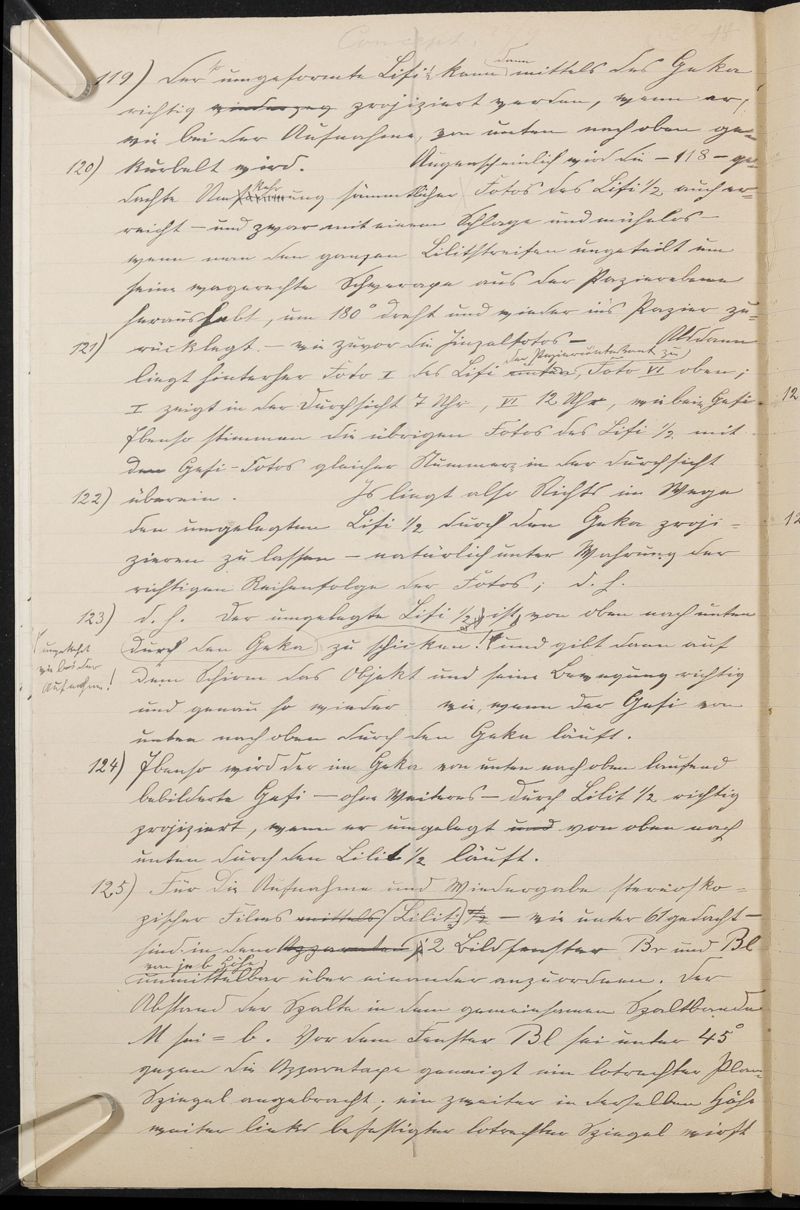 Concept.
119) Der umgeformte Lifi kann dann mittels des Geka
richtig wiederzug projiziert werden, wenn er,
wie bei der Aufnahme, von unten nach oben ge=
120) kurbelt wird. Augenscheinlich wird die – 118 – ge=
dachte Umkehrung sämmtlicher Fotos des Lifi ½ auch er=
reicht – und zwar mit einem Schlage und mühelos –
wenn man den ganzen Lilitstreifen ungeteilt um
seine wagerechte Schweraxe aus der Papierebene
heraushebt, um 180° dreht und wieder in's Papier zu=
121) rücklegt. – wie zuvor die Einzelfotos – Alsdann
liegt hinterher Foto I des Lifi unten der Papierunterkant zu, Foto VI oben;
I zeigt in der Durchsicht 7 Uhr, VI 12 Uhr, wie beim Gefi.
Ebenso stimmen die übrigen Fotos des Lifi ½ mit
den Gefi-Fotos gleicher Nummer in der Durchsicht
122) überein. Es liegt also Nichts im Wege
den umgelegten Lifi ½ durch den Geka proji=
zieren zu lassen – natürlich unter Wahrung der
richtigen Reihenfolge der Fotos; d. h.
123) d. h. der umgelegte Lifi ½ ist von oben nach unten
durch den Geka zu schicken! und gibt dann auf
(umgekehrt
wie bei der
Aufnahme!
dem Schirm das Objekt und seine Bewegung richtig
und genau so wieder wie, wenn der Gefi von
unten nach oben durch den Geka läuft.
124) Ebenso wird der im Geka von unten nach oben laufend
bebilderte Gefi – ohne Weiteres – durch Lilit ½ richtig
projiziert, wenn er umgelegt und von oben nach
unten durch den Lilit ½ läuft.
125) Für die Aufnahme und Wiedergabe stereosko=
pischer Films mittels (Lilit) ½ – wie unter 61 gedacht –
sind in dem Apparate 2 Bildfenster Br und Bl
von je b Höhe
unmittelbar über einander anzuordnen. Der
Abstand der Spalte in dem gemeinsamen Spaltbande
M sei = b. Vor dem Fenster Bl sei unter 45°
gegen die Apparataxe geneigt ein lotrechter Plan=
Spiegel angebracht; ein zweiter in derselben Höhe
weiter links befestigter lotrechter Spiegel wirft
12
12